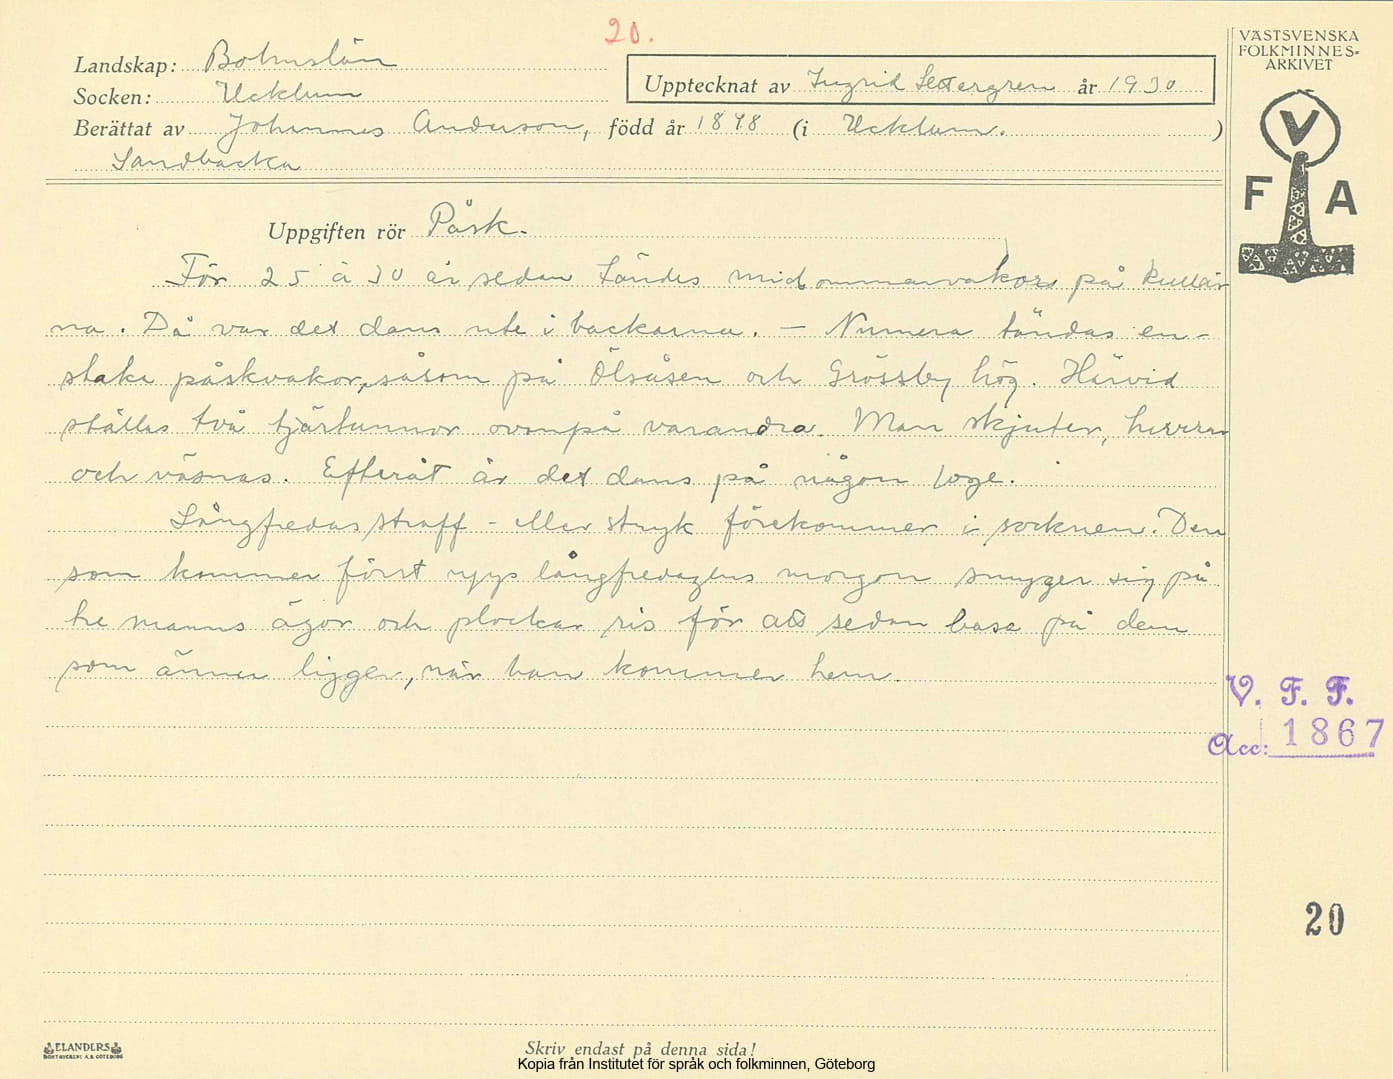 20.
Landskap: Bohuslän
Socken: Ucklum
Upptecknat av Ingrid Settergren år 1930
Berättat av Johannes Anderson, född år 1848 (i Ucklum. )
Sandbacka
VÄSTSVENSKA
FOLKMINNES-
ARKIVET
V
F A
Uppgiften rör Påsk.
För 25 à 30 år sedan tändes midsommarvakor på kullar
na. Då var det dans ute i backarna. — Numera tändas en-
staka påskvakor, såsom på Ölsåsen och Grössby hög. Härvid
ställas två tjärtunnor ovanpå varandra. Man skjuter, hurrar
och väsnas. Efteråt är det dans på någon loge.
Långfredasstraff - eller stryk förekommer i socknen. Den
som kommer först upp långfredagens morgon smyger sig på
tre manns ägor och plockar ris för att sedan basa på dem
som ännu ligger, när han kommer hem.
V. F. F.
Acc: 1867
20
ELANDERS
BOKTRYCKERI A.B. GÖTEBORG
Skriv endast på denna sida!
Kopia från Institutet för språk och folkminnen, Göteborg